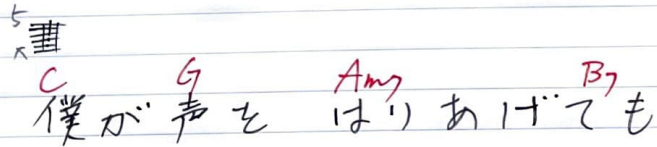 C G Am7 B7
僕が声を はりあげても